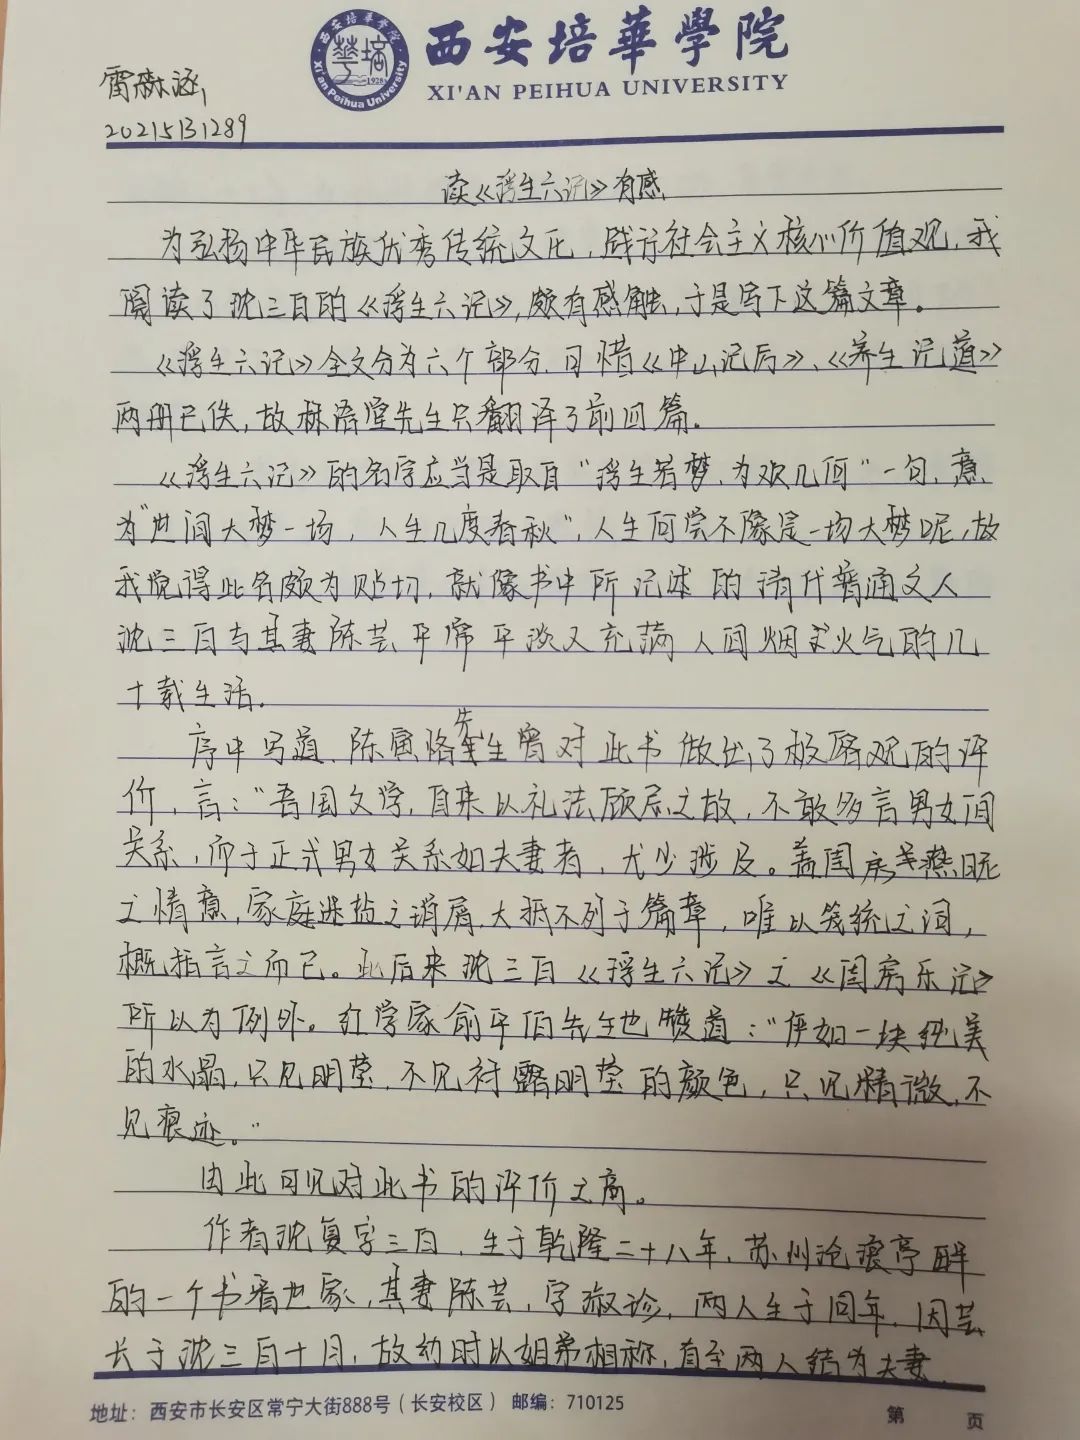 西安培華學院
XI'AN PEIHUA UNIVERSITY
20215131289
读《浮生六记》有感
为弘扬中华民族优秀传统文化，践行社会主义核心价值观，我
阅读了沈三白的《浮生六记》，颇有感触，于是写下这篇文章。
《浮生六记》全文分为六个部分，可惜《中山记历》、《养生记道》
两册已佚，故林语堂先生只翻译了前四篇。
《浮生六记》的名字应当是取自"浮生若梦，为欢几何"一句，意
为"世间大梦一场，人生几度春秋"，人生何尝不像是一场大梦呢，故
我觉得此名颇为贴切，就像书中所记述的清代普通文人
沈三白与其妻陈芸平常平淡又充满人间烟火气的几
十载生活。
序中写道，陈寅恪先生曾对此书做出了极客观的评
价，言："吾国文学，自来以礼法顾忌之故，不敢多言男女间
关系，而于正式男女关系如夫妻者，尤少涉及。盖闺房燕昵
之情意，家庭米盐之琐屑，大抵不列于篇章，唯以笼统之词，
概括言之而已。此后来沈三白《浮生六记》之《闺房乐记》
所以为例外。红学家俞平伯先生也赞道："俨如一块纯美
的水晶，只见明莹，不见衬露明莹的颜色，只见精微，不
见痕迹。"
由此可见对此书的评价之高。
作者沈复字三白，生于乾隆二十八年，苏州沧浪亭畔
的一个书香世家，其妻陈芸，字淑珍，两人生于同年，因芸
长于沈三白十月，故幼时以姐弟相称，直至两人结为夫妻
地址：西安市长安区常宁大街888号（长安校区） 邮编：710125
第 页